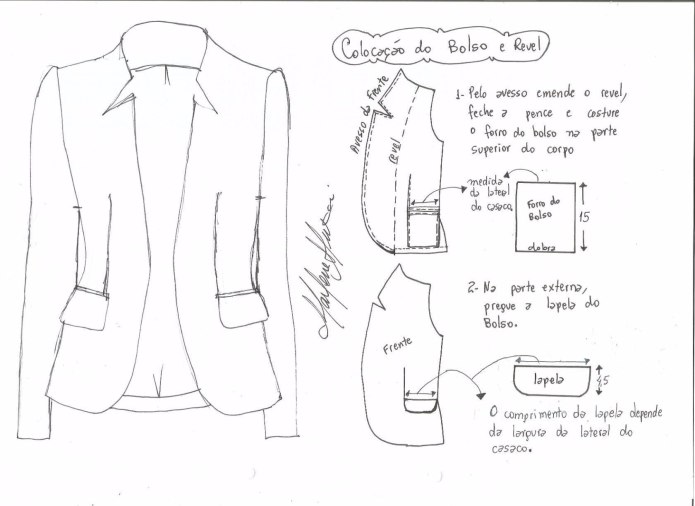 Colocação do Bolso e Revel
Avesso da Frente
revel
1- Pelo avesso emende o revel,
feche a pence e costure
o forro do bolso na parte
superior do corpo
medida
da lateral
do casaco.
Forro do
Bolso
dobra
15
2- Na parte externa,
pregue a lapela do
Bolso.
Frente
lapela
4,5
O comprimento da lapela depende
da largura da lateral do
casaco.